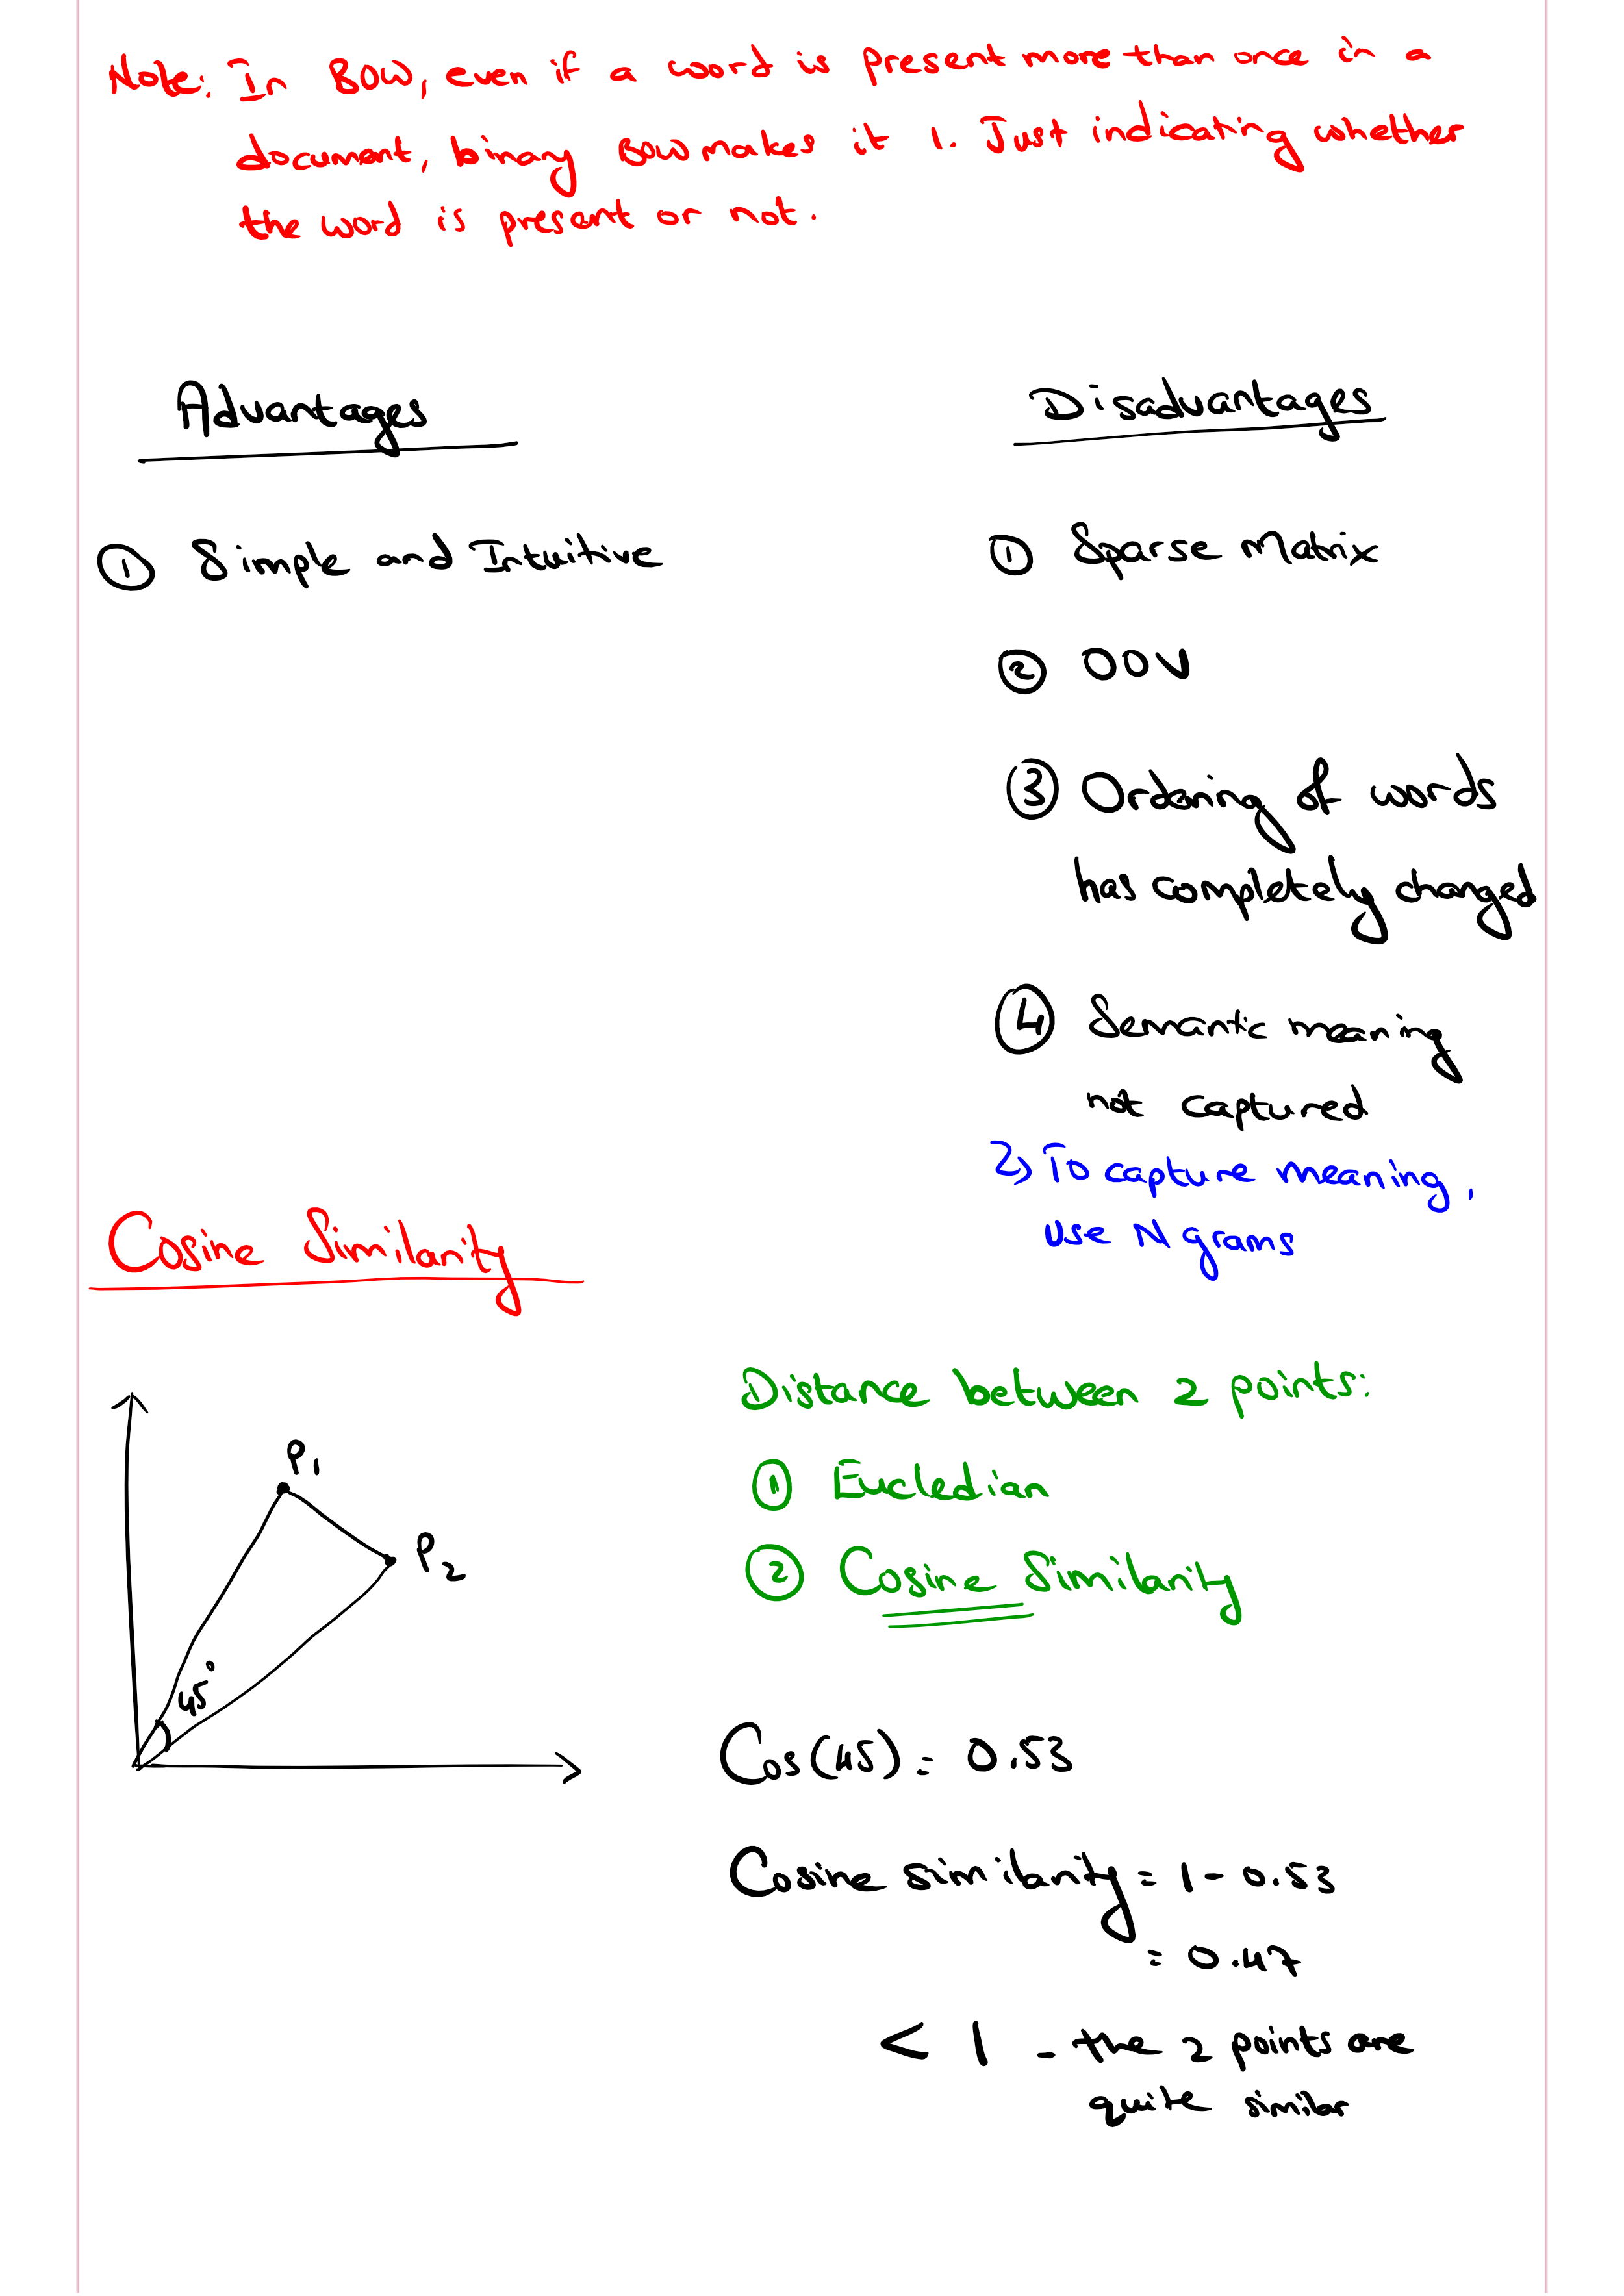 Note: In BOW, even if a word is present more than once in a
document, binary BOW makes it 1. Just indicating whether
the word is present or not.
Advantages
① Simple and Intuitive
Disadvantages
① Sparse Matrix
② OOV
③ Ordering of words
has completely changed
④ Semantic meaning
not captured
To capture meaning,
use N grams
Cosine Similarity
P1
P2
45°
Distance between 2 points:
① Eucledian
② Cosine Similarity
Cos(45) = 0.53
Cosine similarity = 1 - 0.53
= 0.47
< 1 - the 2 points are
quite similar